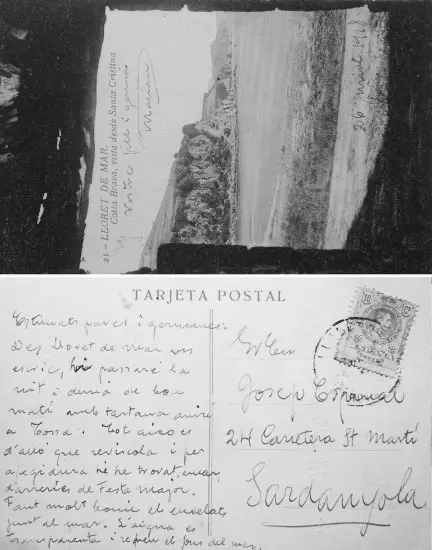 21 – LLORET DE MAR.
Costa Brava, vista desde Santa Cristina
Vostre fill i germà
Mariano
26 1918
TARJETA POSTAL
Estimats pares i germanes:
Des Lloret de mar vos
escric, hi passaré la
nit i demà de bon
matí amb tartana aniré
a Tossa. Tot aixo es
d'allò que reviscola i per
apegidura hé he trovat encar,
d'arreries de Festa Major.
Fant molt bonic els envelats
just al mar. L'aigua es
transparenta i el fons del mar.
Josep Espinal
24 Carretera St Martí
Sardanyola